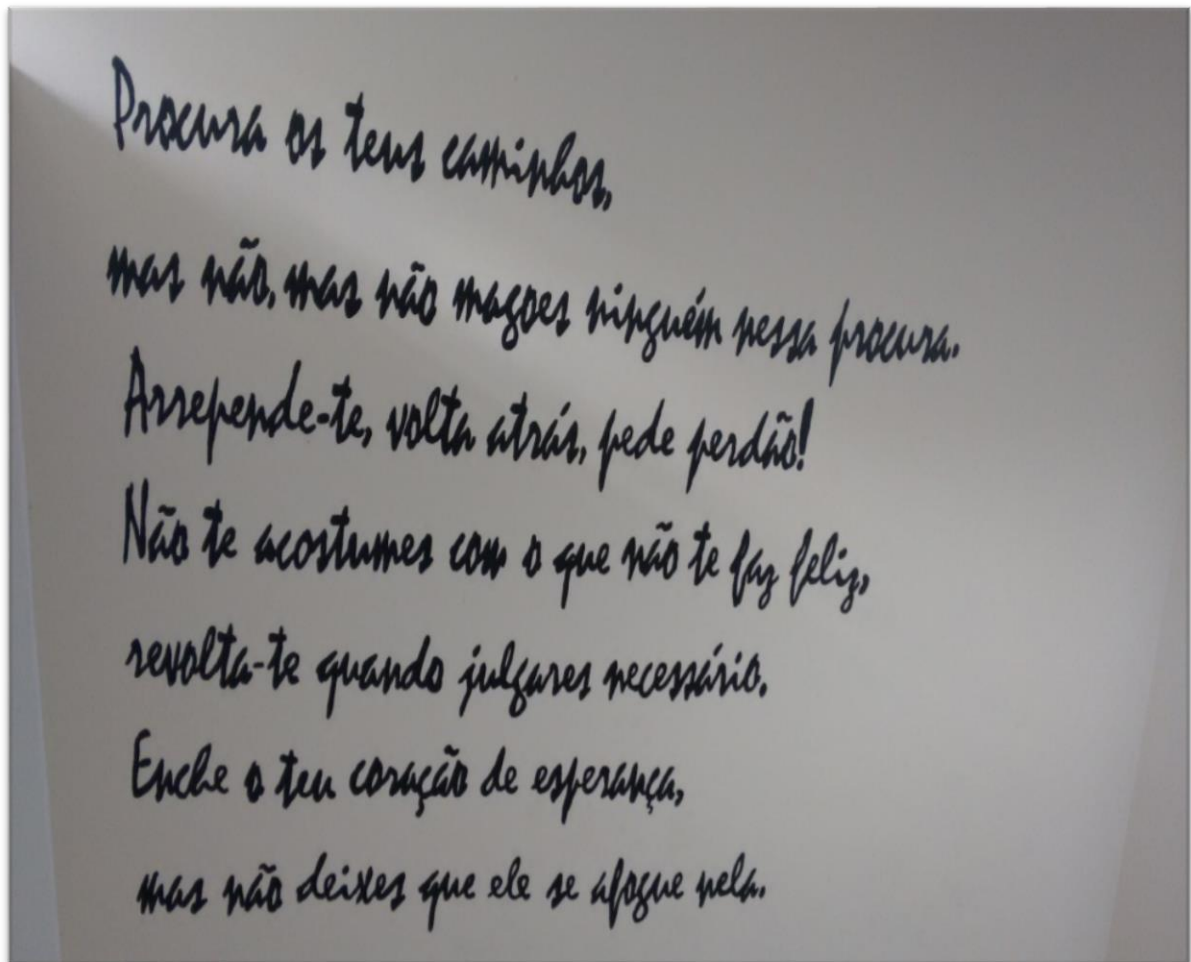 Procura os teus caminhos,
mas não, mas não magoes ninguém nessa procura.
Arrepende-te, volta atrás, pede perdão!
Não te acostumes com o que não te faz feliz,
revolta-te quando julgares necessário.
Enche o teu coração de esperança,
mas não deixes que ele se afogue nela.